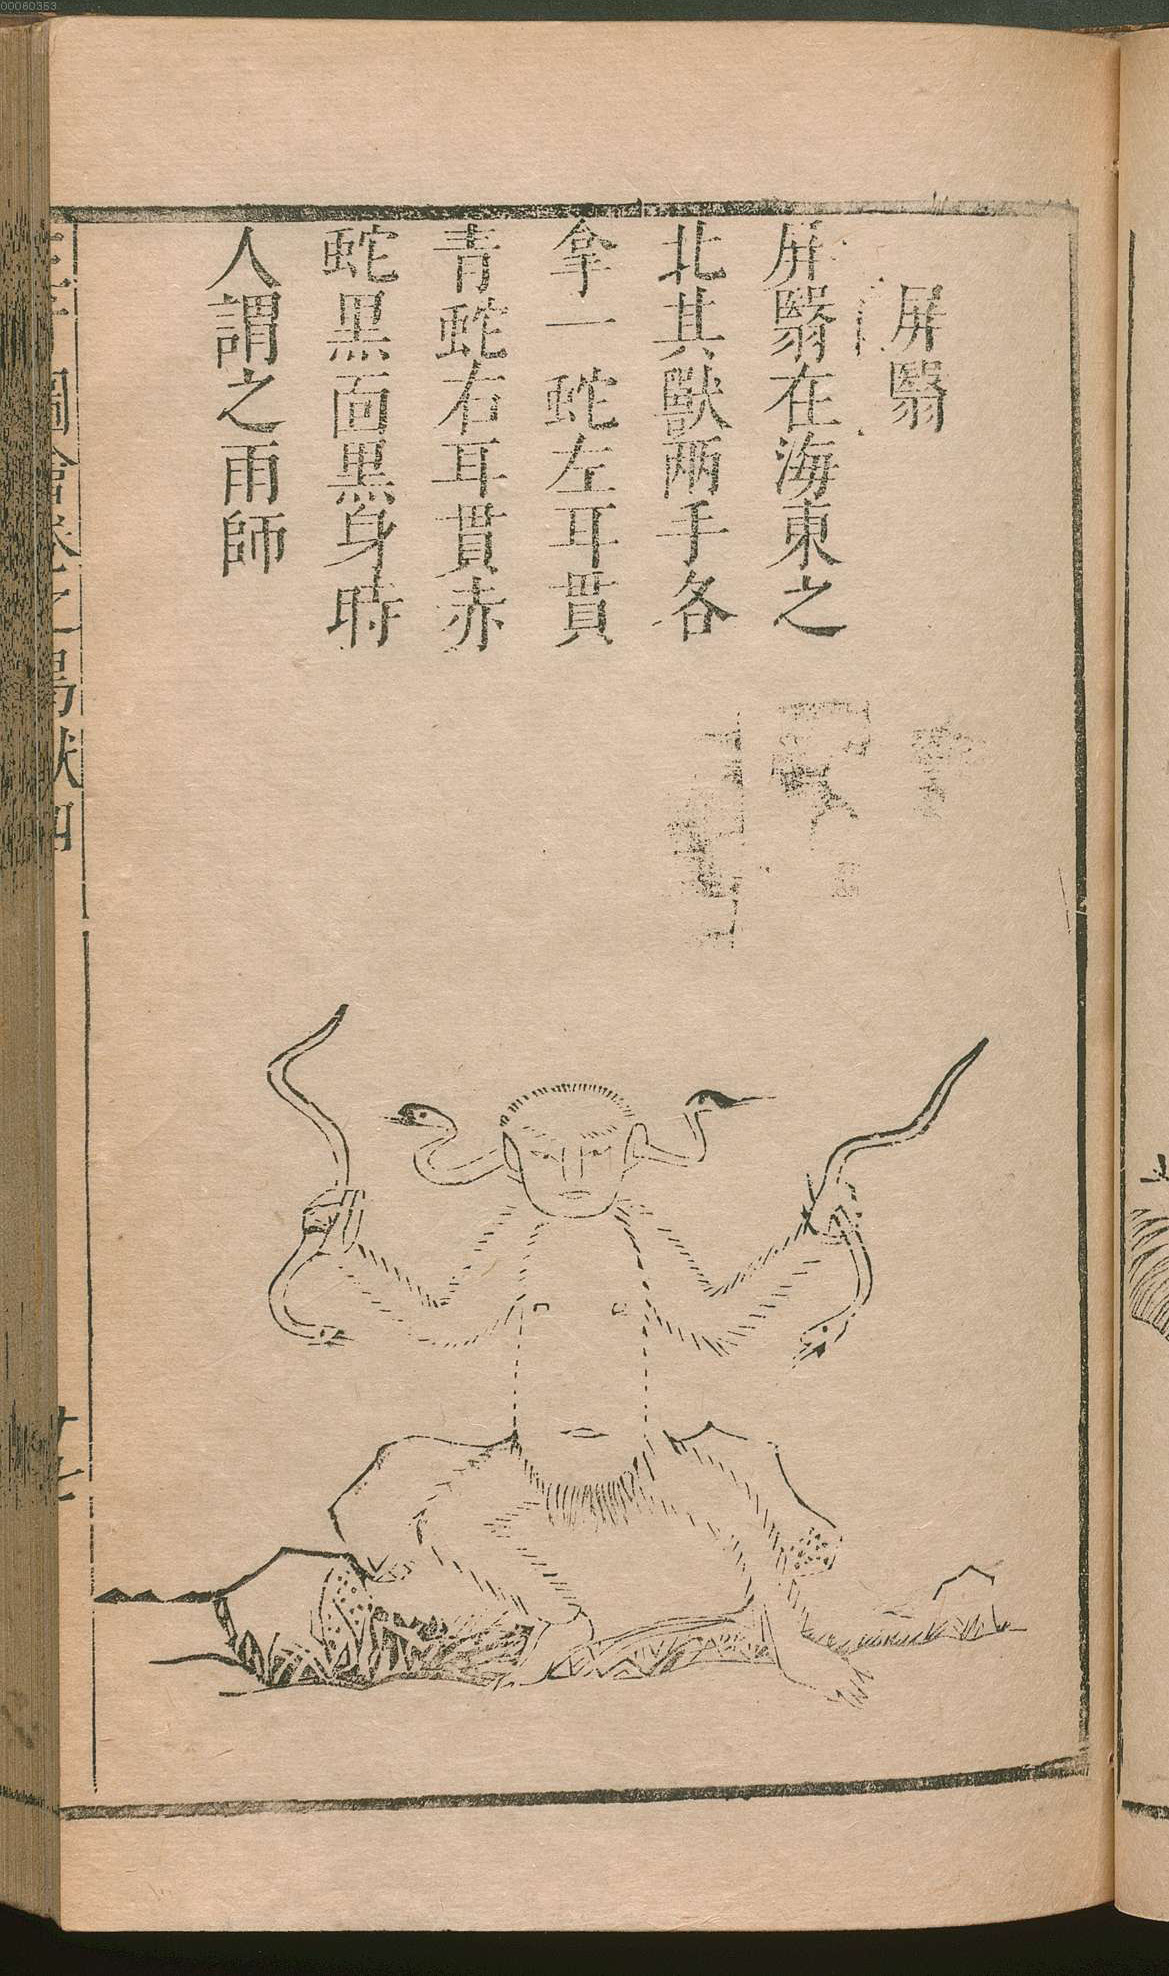 屏翳
屏翳在海東之
北其獸兩手各
拿一蛇左耳貫
青蛇右耳貫赤
蛇黒面黒身時
人謂之雨師
圖會卷之鳥獸四
廿七
00060353